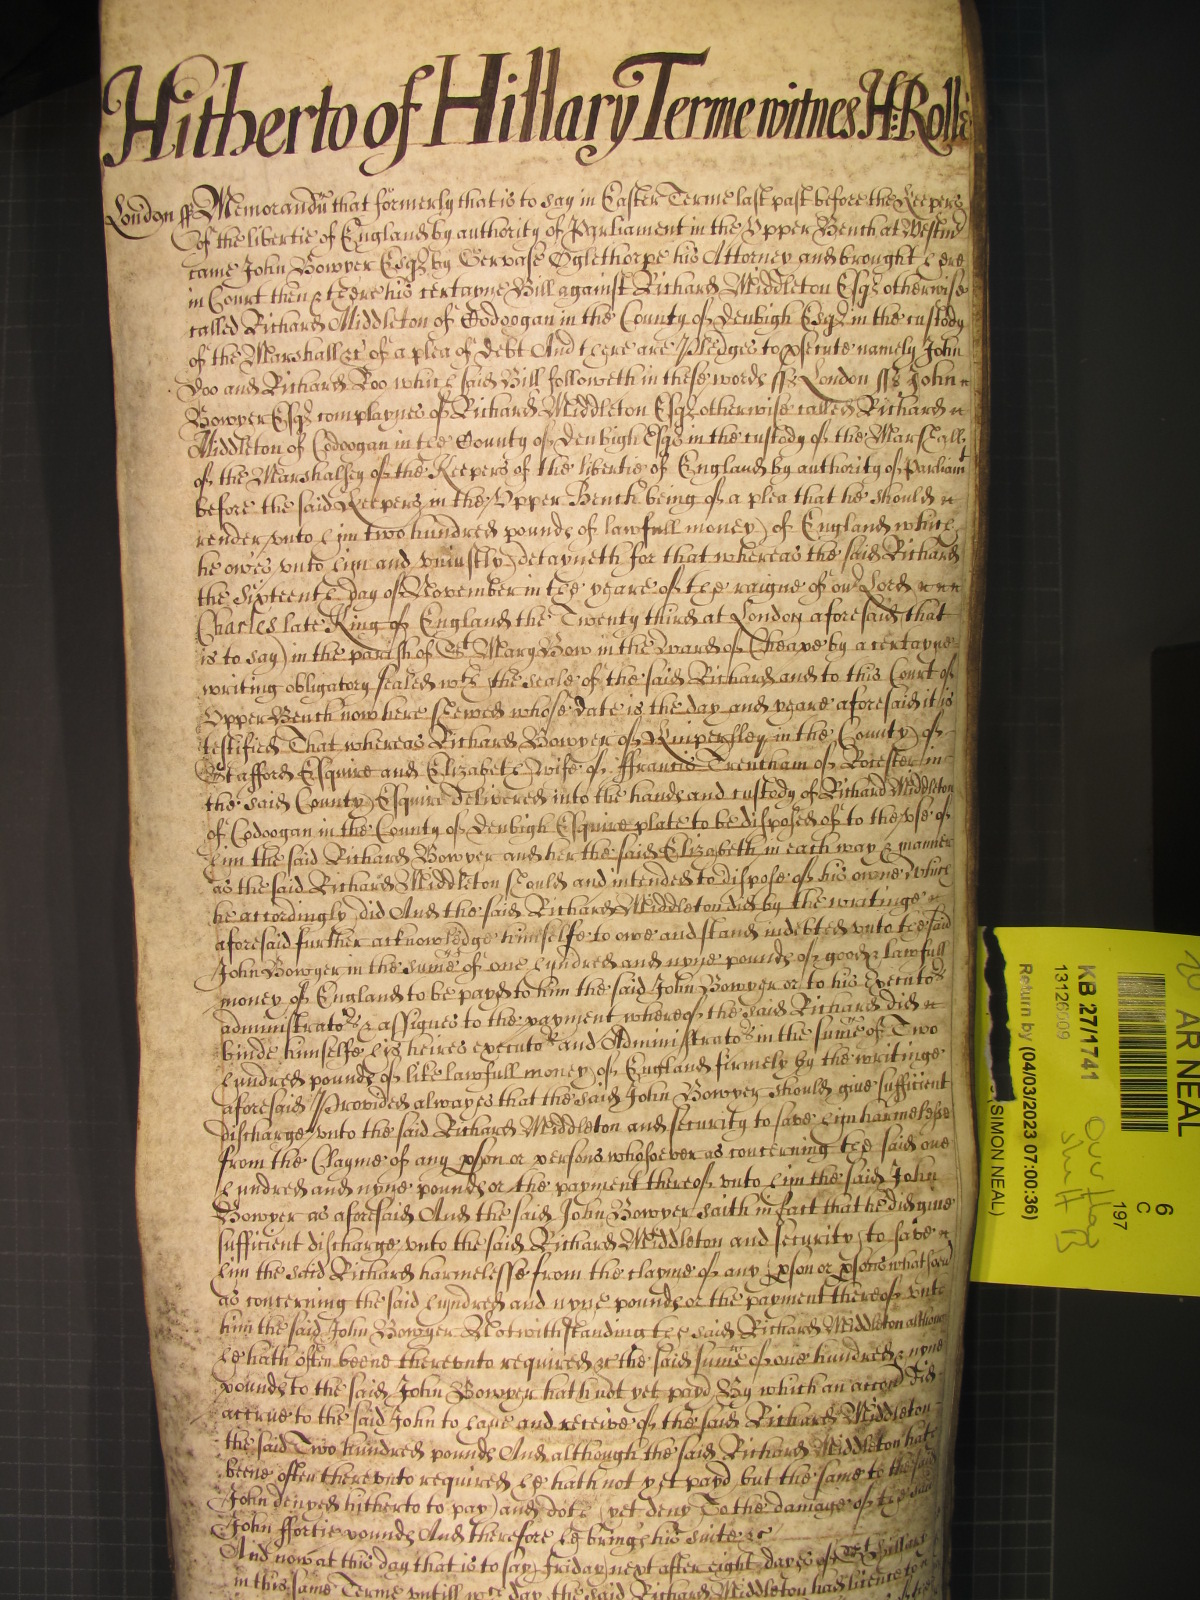 Hitherto of Hillary Terme witnes H: Rolle
London ss Memorandū that formerly that is to say in Easter Terme last past before the Keepers
of the libertie of England by authority of Parliament in the Upper Bench at Westm̃
came John Bowyer Esqr by Gervase Oglethorpe his Attorney and brought here
in Court then & there his certayne Bill against Richard Middleton Esqr otherwise
called Richard Middleton of Codoogan in the County of Denbigh Esqr in the custody
of the Marshall &c of a plea of debt And there are Pledges to psecute namely John
Doo and Richard Roo which said Bill followeth in these words ss London ss John
Bowyer Esqr complaynes of Richard Middleton Esqr otherwise called Richard
Middleton of Codoogan in the County of Denbigh Esqr in the custody of the Marshall
of the Marshalsey of the Keepers of the libertie of England by authority of Parliamt
before the said Keepers in the Upper Bench being of a plea that he should
render vnto him two hundred pounds of lawfull money of England which
he owes vnto him and vniustly detayneth for that whereas the said Richard
the Sixteenth day of November in the yeare of the raigne of our Lord
Charles late King of England the Twenty third at London aforesaid that
is to say in the parish of St Mary Bow in the Ward of Cheape by a certayne
writing obligatory sealed wth the seale of the said Richard and to this Court of
Upper Bench now here shewed whose date is the day and yeare aforesaid it is
testified That whereas Richard Bowyer of Knipersley in the County of
Stafford Esquire and Elizabeth wife of ffrancis Trentham of Rocester in
the said County Esquire delivered into the hands and custody of Richard Middleton
of Codoogan in the County of Denbigh Esquire plate to be disposed of to the vse of
him the said Richard Bowyer and her the said Elizabeth in each way & manner
as the said Richard Middleton should and intended to dispose of his owne which
he accordingly did And the said Richard Middleton did by the writinge
aforesaid further acknowledge himselfe to owe and stand indebted vnto the said
John Bowyer in the sume of one hundred and nyne pounds of good & lawfull
money of England to be payd to him the said John Bowyer or to his Executors
administrators & assignes to the payment whereof the said Richard did
binde himselfe his heires executors and Administrators in the sume of Two
hundred pounds of like lawfull money of England firmely by the writinge
aforesaid Provided alwayes that the said John Bowyer should give sufficient
discharge vnto the said Richard Middleton and security to save him harmelesse
from the Clayme of any pson or persons whosoever as concerning the said one
hundred and nyne pounds or the payment thereof vnto him the said John
Bowyer as aforesaid And the said John Bowyer saith in fact that he did give
sufficient discharge vnto the said Richard Middleton and security to save
him the said Richard harmelesse from the clayme of any pson or psons whatsoever
as concerning the said hundred and nyne pounds or the payment thereof vnto
him the said John Bowyer Notwithstanding the said Richard Middleton although
he hath often beene therevnto required &c the said sume of one hundred & nyne
pounds to the said John Bowyer hath not yet payd By which an accon did
accrue to the said John to have and receive of the said Richard Middleton
the said Two hundred pounds And although the said Richard Middleton hath
beene often therevnto required he hath not yet payd but the same to the said
John denyed hitherto to pay and doth yet deny To the damage of the said
John ffortie pounds And therefore he brings his suite &c
And now at this day that is to say friday next after eight dayes of St Hillary
in this same Terme untill wch day the said Richard Middleton had licence to
AR NEAL
6
C
197
KB 27/1741
13126609
Return by (04/03/2023 07:00:36)
(SIMON NEAL)